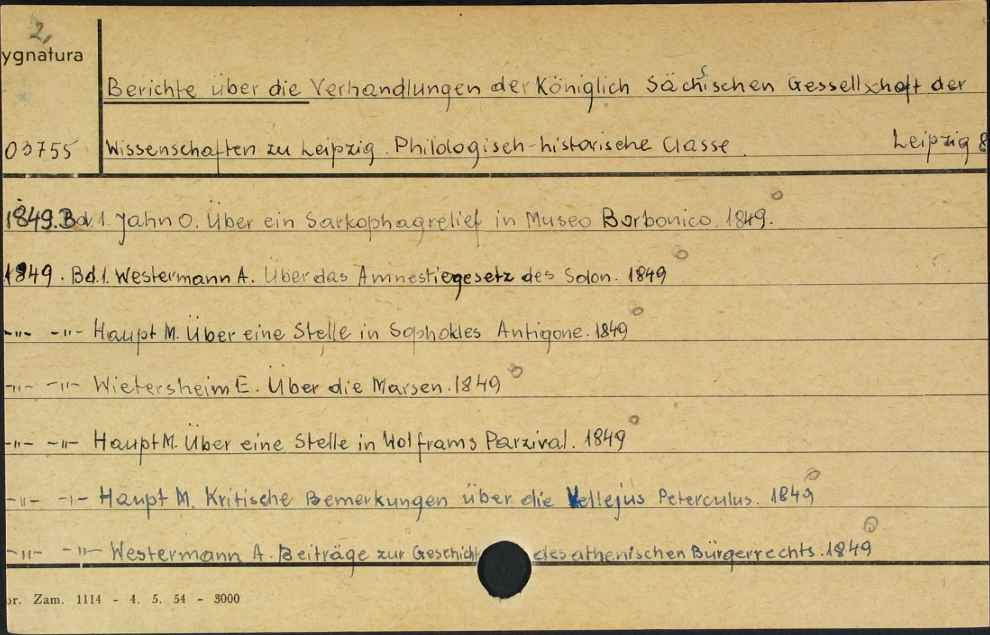 2,
ygnatura
Berichte über die Verhandlungen der Königlich Sächsischen Gessellschaft der
03755 Wissenschaften zu Leipzig. Philologisch-historische Classe. Leipzig 8
1849. Bd. 1. Jahn O. Über ein Sarkophagrelief in Museo Borbonico. 1849.
1849. Bd. 1. Westermann A. Über das Amnestiegesetz des Solon. 1849
-"- -"- Haupt M. Über eine Stelle in Sophokles Antigone. 1849
-"- -"- Wietersheim E. Über die Marsen. 1849
-"- -"- Haupt M. Über eine Stelle in Wolframs Parzival. 1849
-"- -"- Haupt M. Kritische Bemerkungen über die Vellejus Peterculus. 1849
-"- -"- Westermann A. Beiträge zur Geschicht des athenischen Bürgerrechts. 1849
or. Zam. 1114 - 4. 5. 54 - 3000